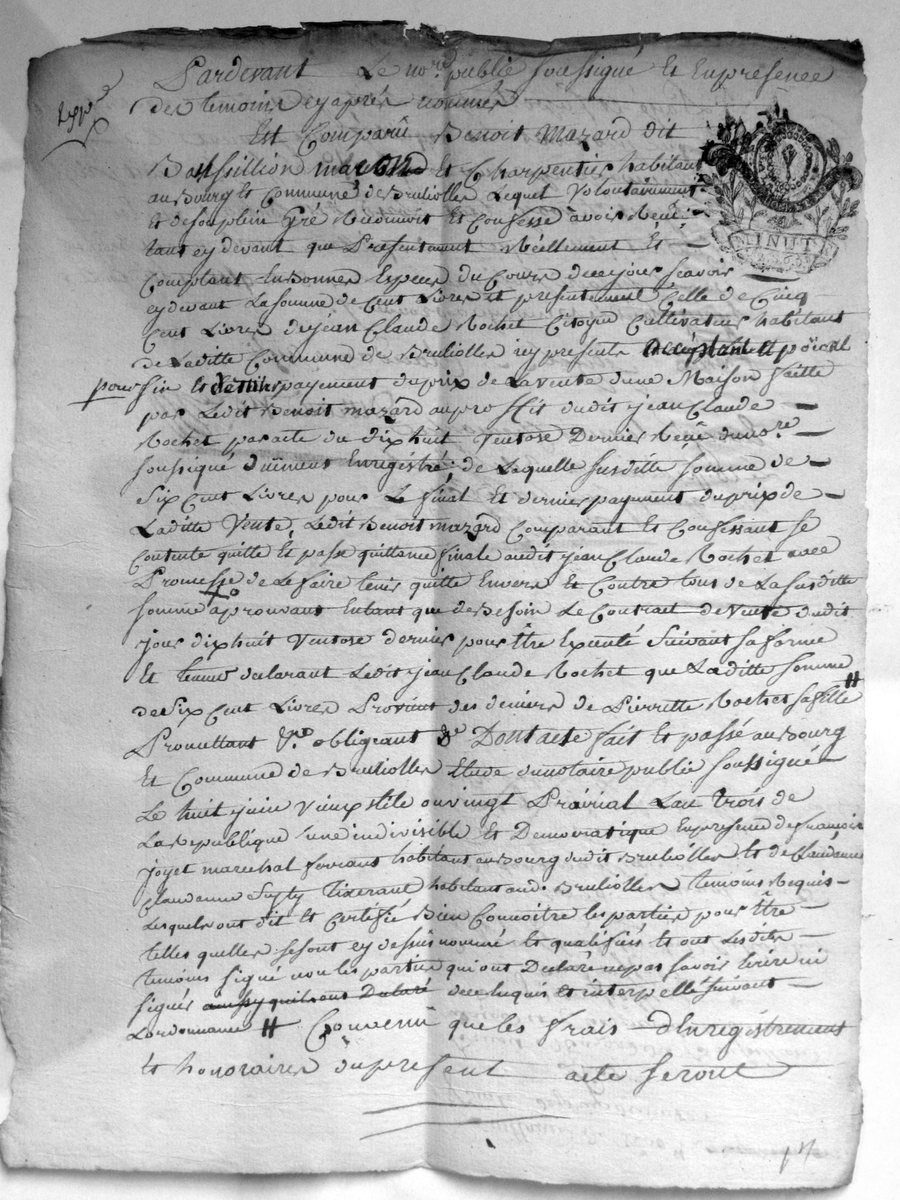 Pardevant Le no.re public soussigné Et En presence
des temoins cy aprés nommés
Exp.ée
Est Comparû Benoit Mazard dit
Bassillion maçon Et Charpentier habitant
au Bourg Et Commune de Brulioles Lequel Volontairement
Et de son plein Gré Reconnoit Et Confesse avoir Reçû
tant cy devant que Presentement Réellement Et
Comptant En Bonnes Espèces du Cours de ce jour scavoir
cy devant La somme de Cent Livres et presentement Celle de Cinq
Cent Livres de jean Claude Rochet Citoyen Cultivateur habitant
de Laditte Commune de Brulioles icy present acceptant Et
pour fin Et dernier payement du prix de La vente d'une Maison faitte
par Ledit Benoit mazard au proffit dudit jean Claude
Rochet par acte du dix huit Ventose Dernier Reçû du no.re
soussigné düement Enregistré, de Laquelle susditte somme de
Six Cent Livres pour Le final Et dernier payement du prix de
Laditte Vente, Ledit Benoit mazard Comparant Et Confessant se
Contente quitte Et passe quittance finale audit jean Claude Rochet avec
Promesse de Le faire tenir quitte Envers Et Contre tous de La susditte
somme aprouvant Entant que de Besoin Le Contrait de Vente dudit
jour dix huit Ventose dernier pour Être Executé Suivant sa forme
Et teneur declarant Ledit jean Claude Rochet que Laditte somme
de Six Cent Livres Provient des deniers de Pierrette Rochet sa fille #
Promettant &.a obligeant &.a Dont acte fait Et passé au Bourg
Et Commune de Brulioles Etude du notaire public soussigné
Le huit juin Vieux stile ou vingt Prairial L'an trois de
La Republique une indivisible Et Democratique En presence de françois
joyet marechal ferrant habitant au Bourg dudit Brulioles Et de Claude
Claudanne tixerant habitant aud. Brulioles temoins Requis
Lesquels ont dit Et Certifié Bien Connoitre les parties pour Être
telles quelles se sont cy dessus nommé Et qualifiés Et ont Lesdits
temoins signé non les parties qui ont Declaré ne pas savoir Ecrire ni
signer aussy quils ont Declaré de ce Requis Et interpellé suivant
Lordonnance # Convenu que les frais d'Enregistrement
Et honoraires du present acte seront
MINUTE